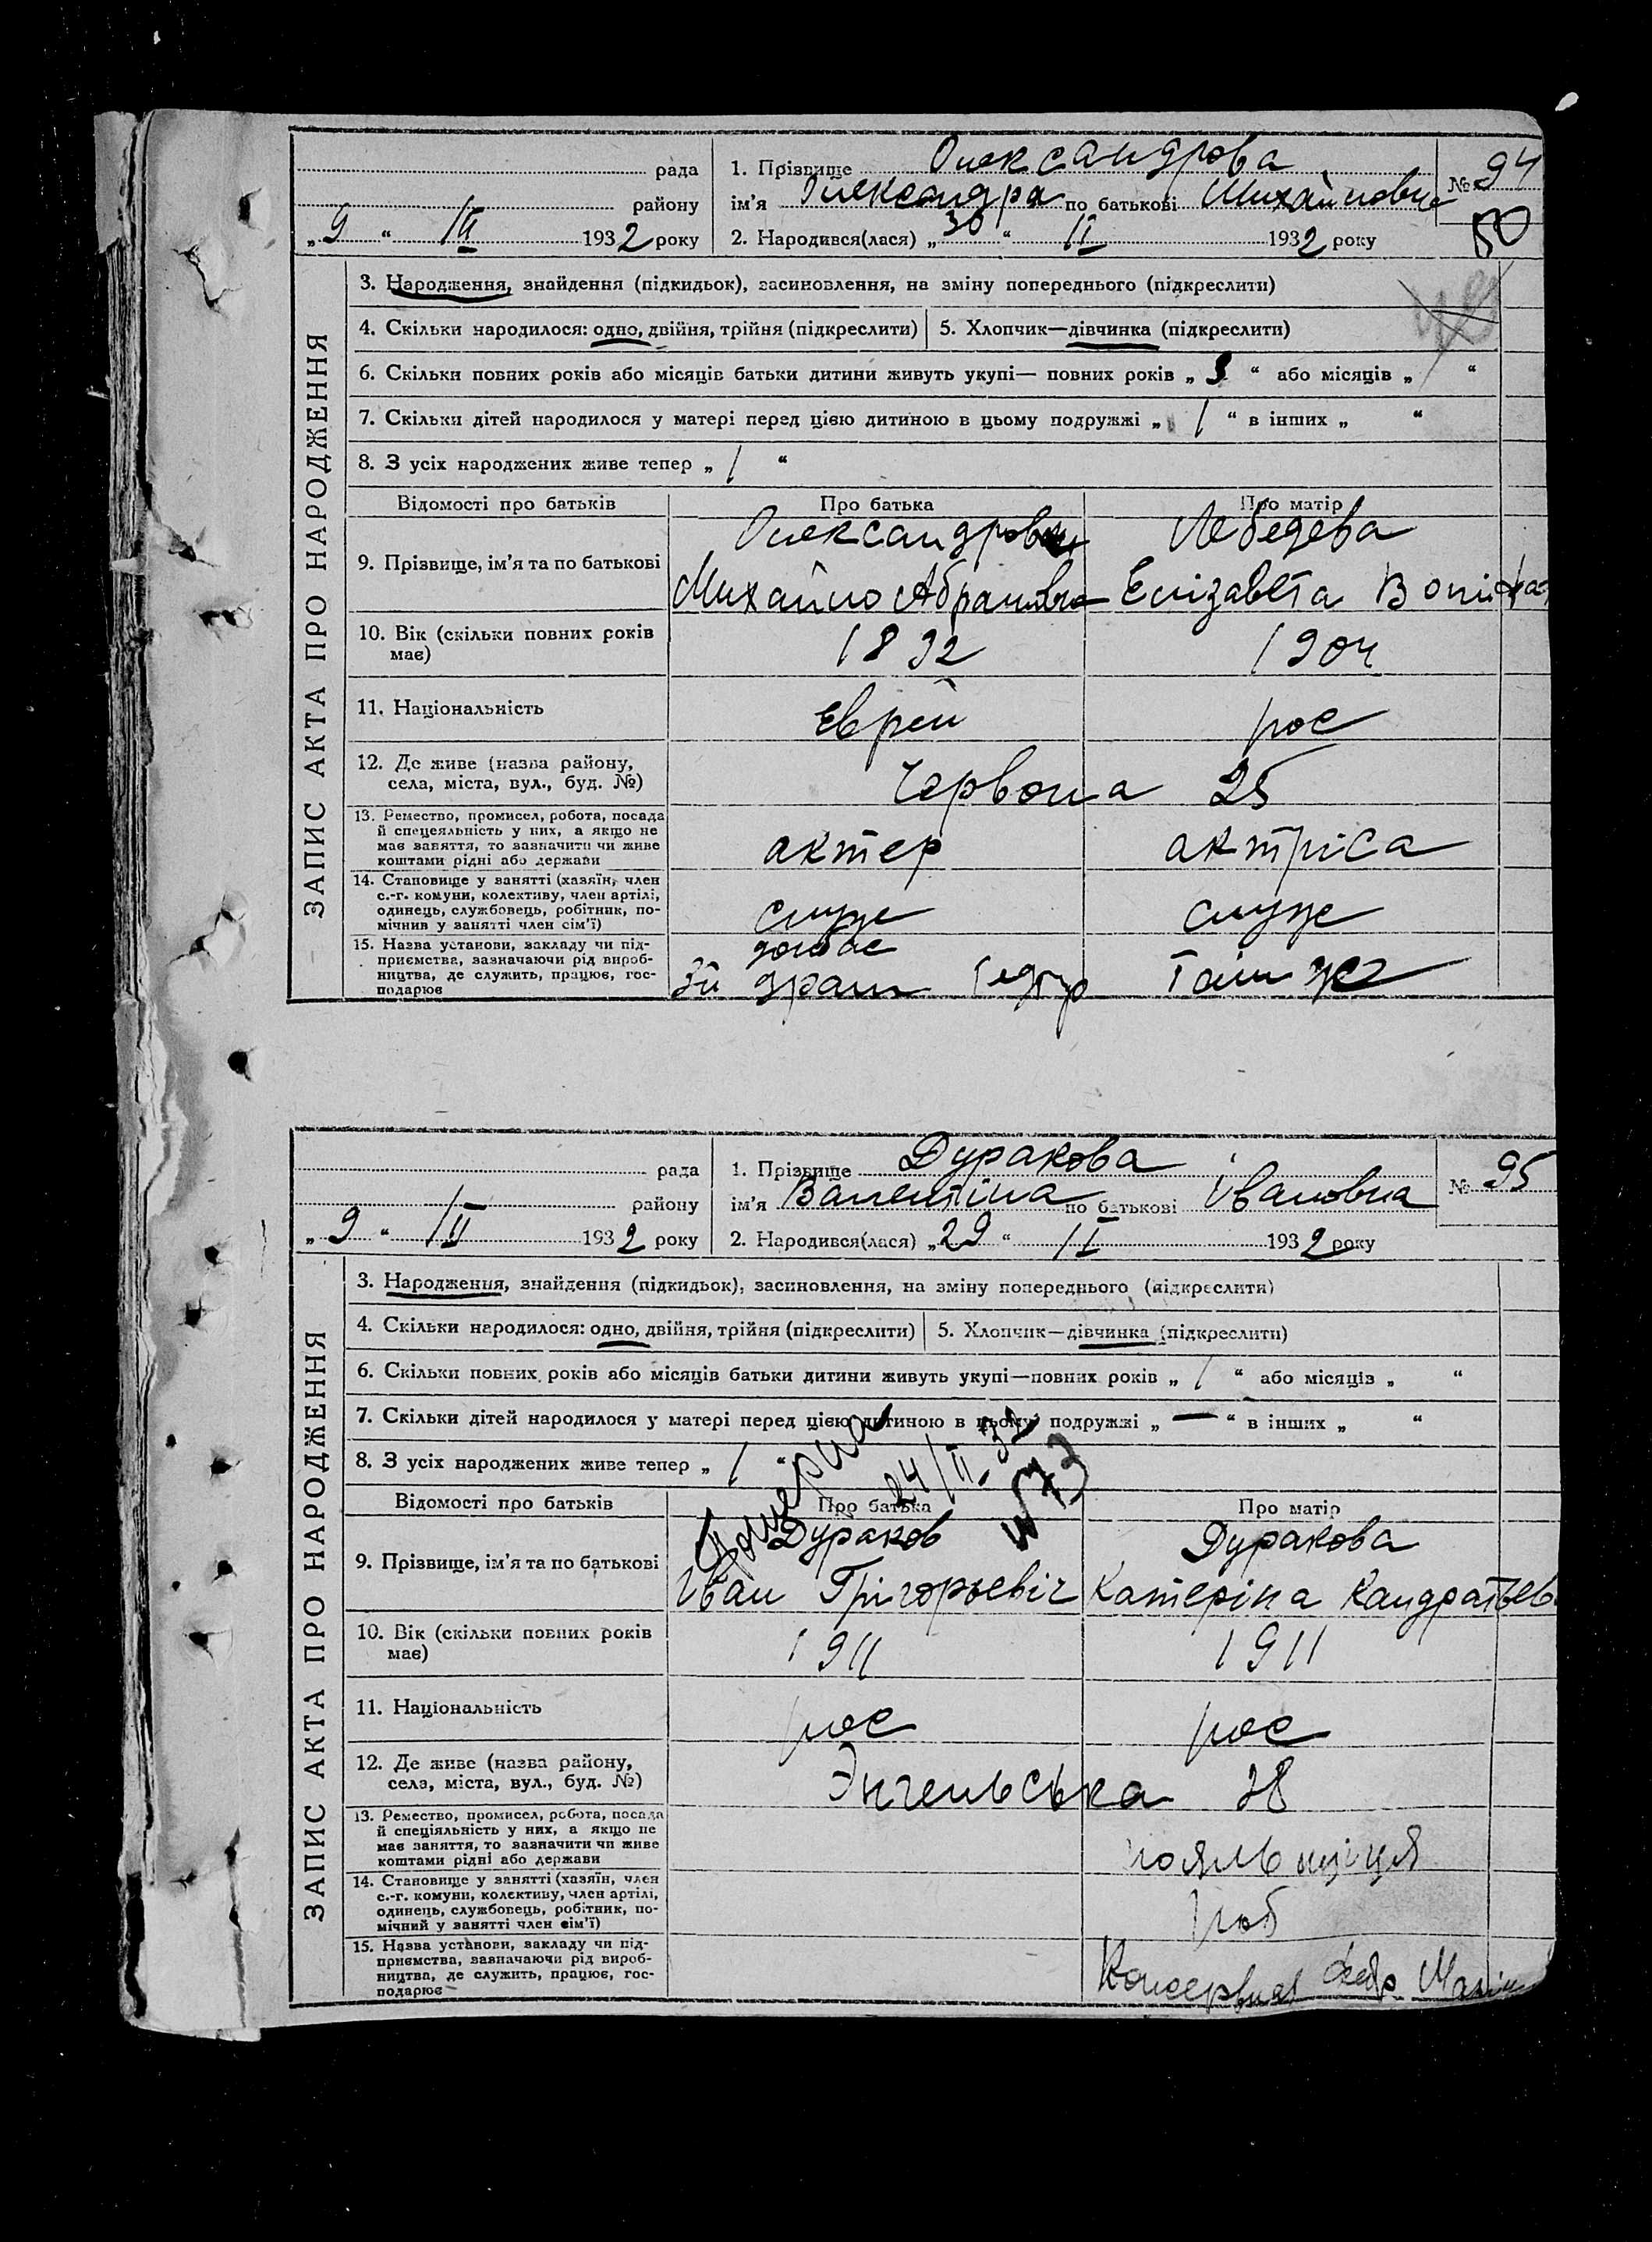 рада
району
„9“ III 1932 року
1. Прізвище Олександрова
ім’я Олександра по батькові Михайловна
2. Народився(лася) „30“ II 1932 року
№ 94
50
ЗАПИС АКТА ПРО НАРОДЖЕННЯ
3. Народження, знайдення (підкидьок), засиновлення, на зміну попереднього (підкреслити)
4. Скільки народилося: одно, двійня, трійня (підкреслити) 5. Хлопчик—дівчинка (підкреслити)
6. Скільки повних років або місяців батьки дитини живуть укупі— повних років „3“ або місяців „ “
7. Скільки дітей народилося у матері перед цією дитиною в цьому подружжі „1“ в інших „ “
8. З усіх народжених живе тепер „1“
Відомості про батьків Про батька Про матір
9. Прізвище, ім’я та по батькові
Олександров Лебедева
Михайло Абрамович Єлізавета
10. Вік (скільки повних років має) 1892 1904
11. Національність Еврей рос
12. Де живе (назва району, села, міста, вул., буд. №) Червона 25
13. Ремество, промисел, робота, посада
й спецеяльність у них, а якщо не
має заняття, то зазначити чи живе
коштами рідні або держави
актер актріса
14. Становище у занятті (хазяїн, член
с.-г. комуни, колективу, член артілі,
одинець, службовець, робітник, по-
мічнив у занятті член сім’ї)
служ служ
15. Назва установи, закладу чи під-
приємства, зазначаючи рід вироб-
ництва, де служить, працює, гос-
подарює
3й драм
рада
району
„9“ III 1932 року
1. Прізвище Дуракова
ім’я Валентіна по батькові Івановна
2. Народився(лася) „29“ II 1932 року
№ 95
ЗАПИС АКТА ПРО НАРОДЖЕННЯ
3. Народження, знайдення (підкидьок), засиновлення, на зміну попереднього (підкреслити)
4. Скільки народилося: одно, двійня, трійня (підкреслити) 5. Хлопчик—дівчинка (підкреслити)
6. Скільки повних років або місяців батьки дитини живуть укупі—повних років „1“ або місяців „ “
7. Скільки дітей народилося у матері перед цією дитиною в цьому подружжі „—“ в інших „ “
8. З усіх народжених живе тепер „1“
24/II-32
№ 73
Відомості про батьків Про батька Про матір
9. Прізвище, ім’я та по батькові
Дураков Дуракова
Іван Грігорьевіч Катеріна Кандратьев
10. Вік (скільки повних років має) 1911 1911
11. Національність рос рос
12. Де живе (назва району, села, міста, вул., буд. №) Энгельська 28
13. Ремество, промисел, робота, посада
й спеціяльність у них, а якщо не
має заняття, то зазначити чи живе
коштами рідні або держави
14. Становище у занятті (хазяїн, член
с.-г. комуни, колективу, член артілі,
одинець, службовець, робітник, по-
мічний у занятті член сім’ї)
роб
15. Назва установи, закладу чи під-
приємства, зазначаючи рід вироб-
ництва, де служить, працює, гос-
подарює